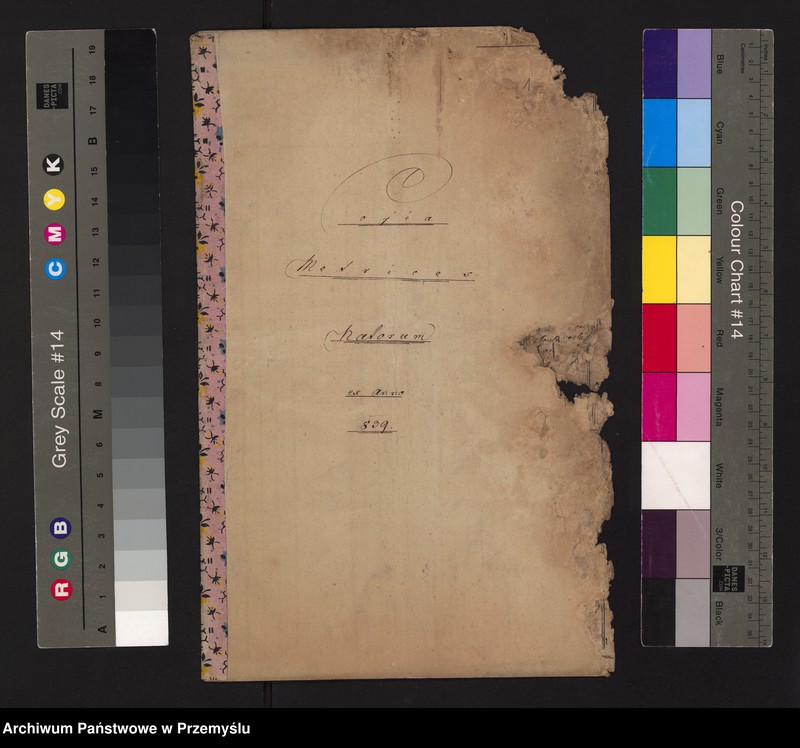 1
Copia
Metrices
Natorum
ex Anno
839.
Grey Scale #14
DANES
-PICTA
.COM
K
Y
M
C
B
G
R
A 1 2 3 4 5 6 M 8 9 10 11 12 13 14 15 B 17 18 19
Colour Chart #14
Blue
Cyan
Green
Yellow
Red
Magenta
White
3/Color
Black
Centimetres
Inches
DANES
-PICTA
.COM
Archiwum Państwowe w Przemyślu